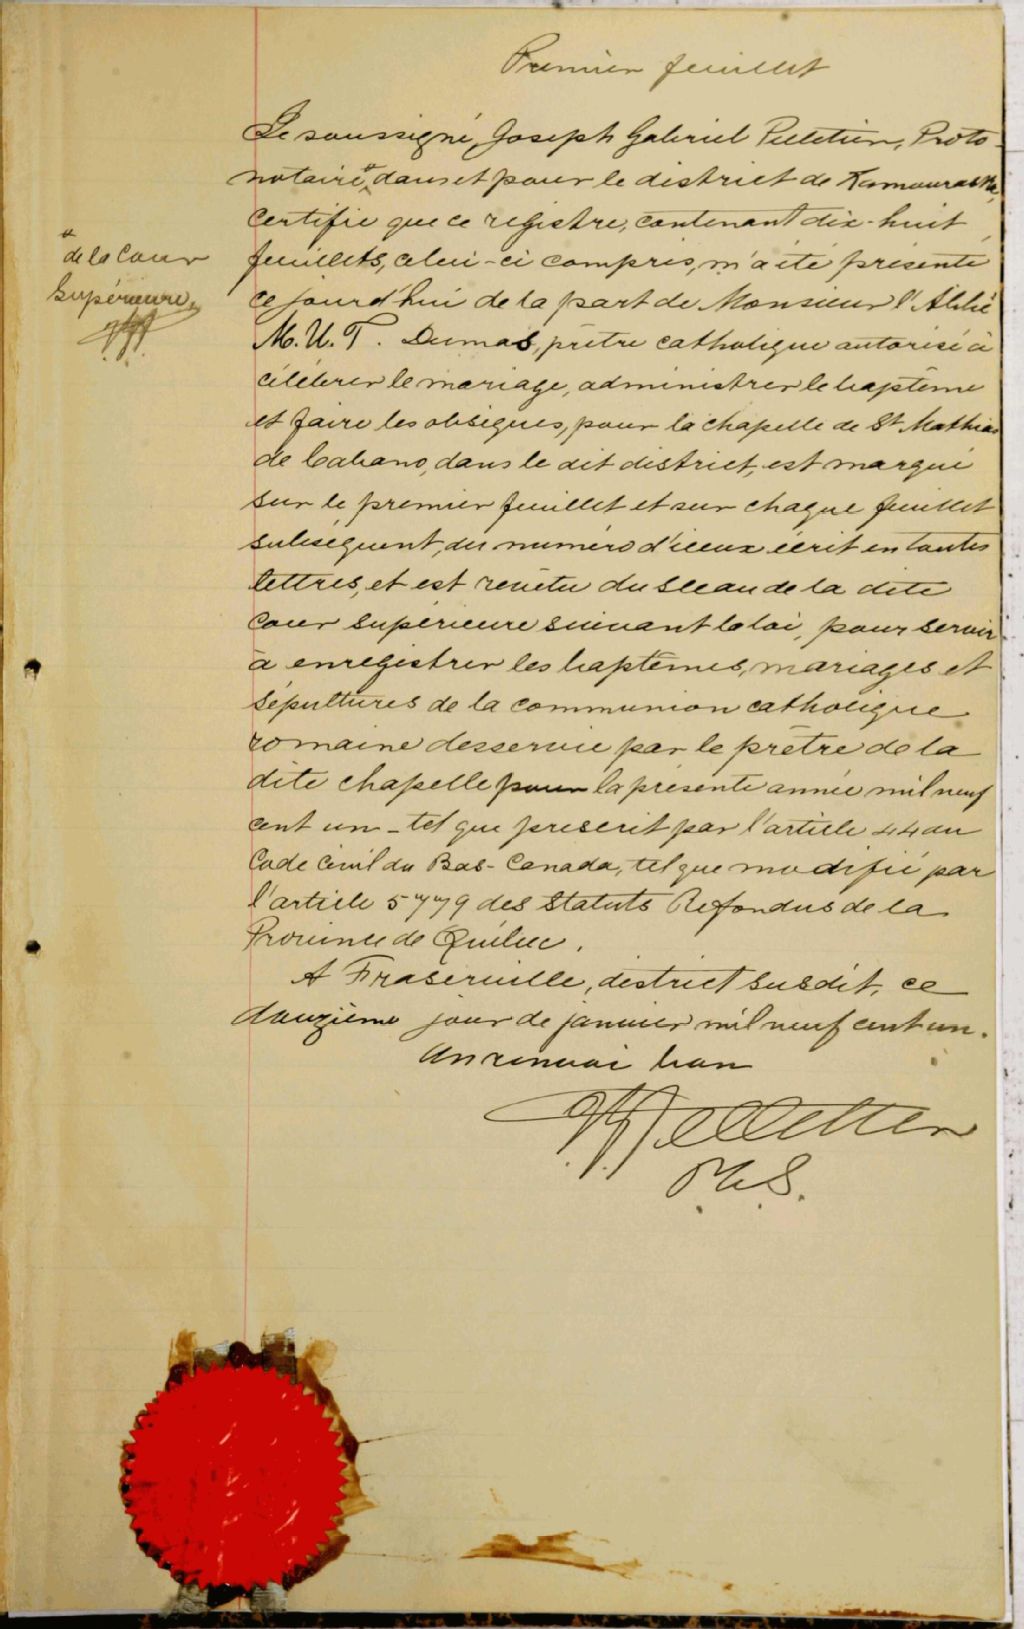 Premier feuillet
Le soussigné, Joseph Gabriel Pelletier, Proto-
notaire* dans et pour le district de Kamouraska,
certifie que ce registre, contenant dix-huit
* de la Cour
Supérieure,
feuillets, celui-ci compris, m'a été présenté
ce jourd'hui de la part de Monsieur l'Abbé
M. U. T. Dumas, prêtre catholique autorisé à
célébrer le mariage, administrer le baptême
et faire les obsèques, pour la chapelle de St Mathias
de Cabano, dans le dit district, est marqué
sur le premier feuillet et sur chaque feuillet
subséquent, du numéro d'iceux écrit en toutes
lettres, et est revêtu du sceau de la dite
Cour Supérieure suivant la loi, pour servir
à enregistrer les baptêmes, mariages et
sépultures de la communion catholique
romaine desservie par le prêtre de la
dite chapelle pour la présente année mil neuf
cent un - tel que prescrit par l'article 44 du
Code Civil du Bas-Canada, tel que modifié par
l'article 5779 des Statuts Refondus de la
Province de Québec.
A Fraserville, district susdit, ce
douzième jour de janvier mil neuf cent un.
Un renvoi bon
Pelletier
P.C.S.